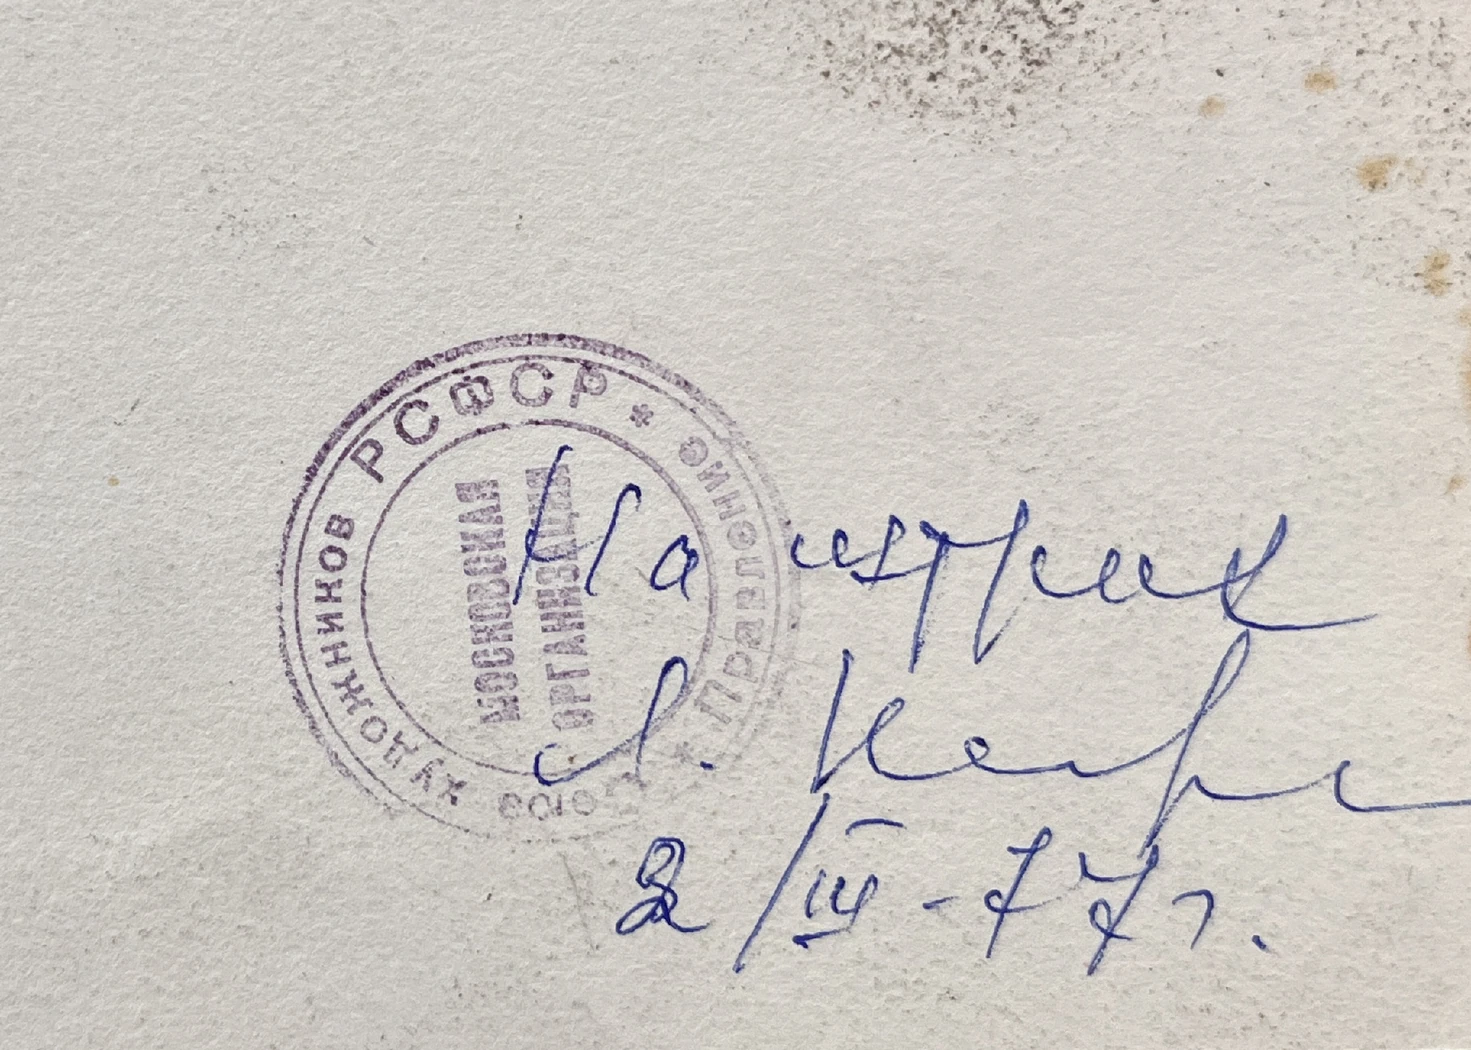 Союз художников РСФСР * Правление *
МОСКОВСКАЯ
ОРГАНИЗАЦИЯ
На
Л.
2/III-77г.